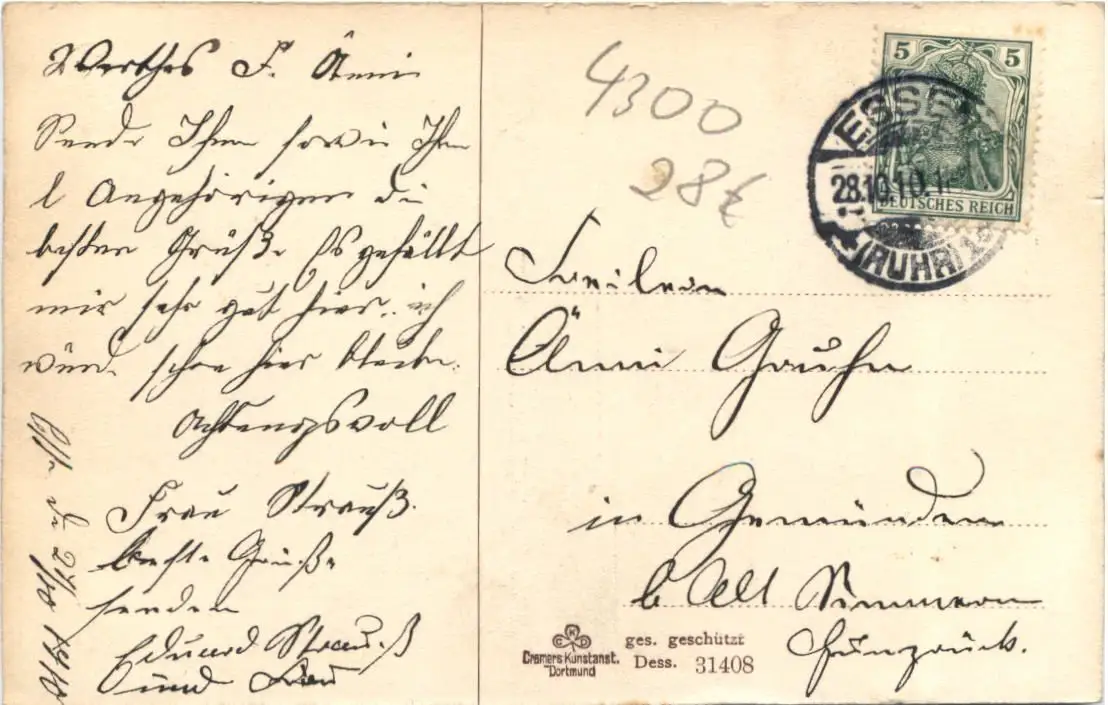 Werthes F. Änni
Sende Ihnen sowie Ihren
l Angehörigen die
besten Grüße Es gefällt
mir sehr gut hier. ich
würde schon hier bleiben.
Achtungsvoll
Frau Strauß.
beste Grüße
senden
Eduard Strauß
und Frau
den 27/10 1910
4300
28€
5 5
DEUTSCHES REICH
ESSEN
28.10.10.
(RUHR)
Freilein
Änni Gruhn
in Gemünden
b Alt Simmern
Hunsrück.
CKD
Cramers Kunstanst.
Dortmund
ges. geschützt
Dess. 31408